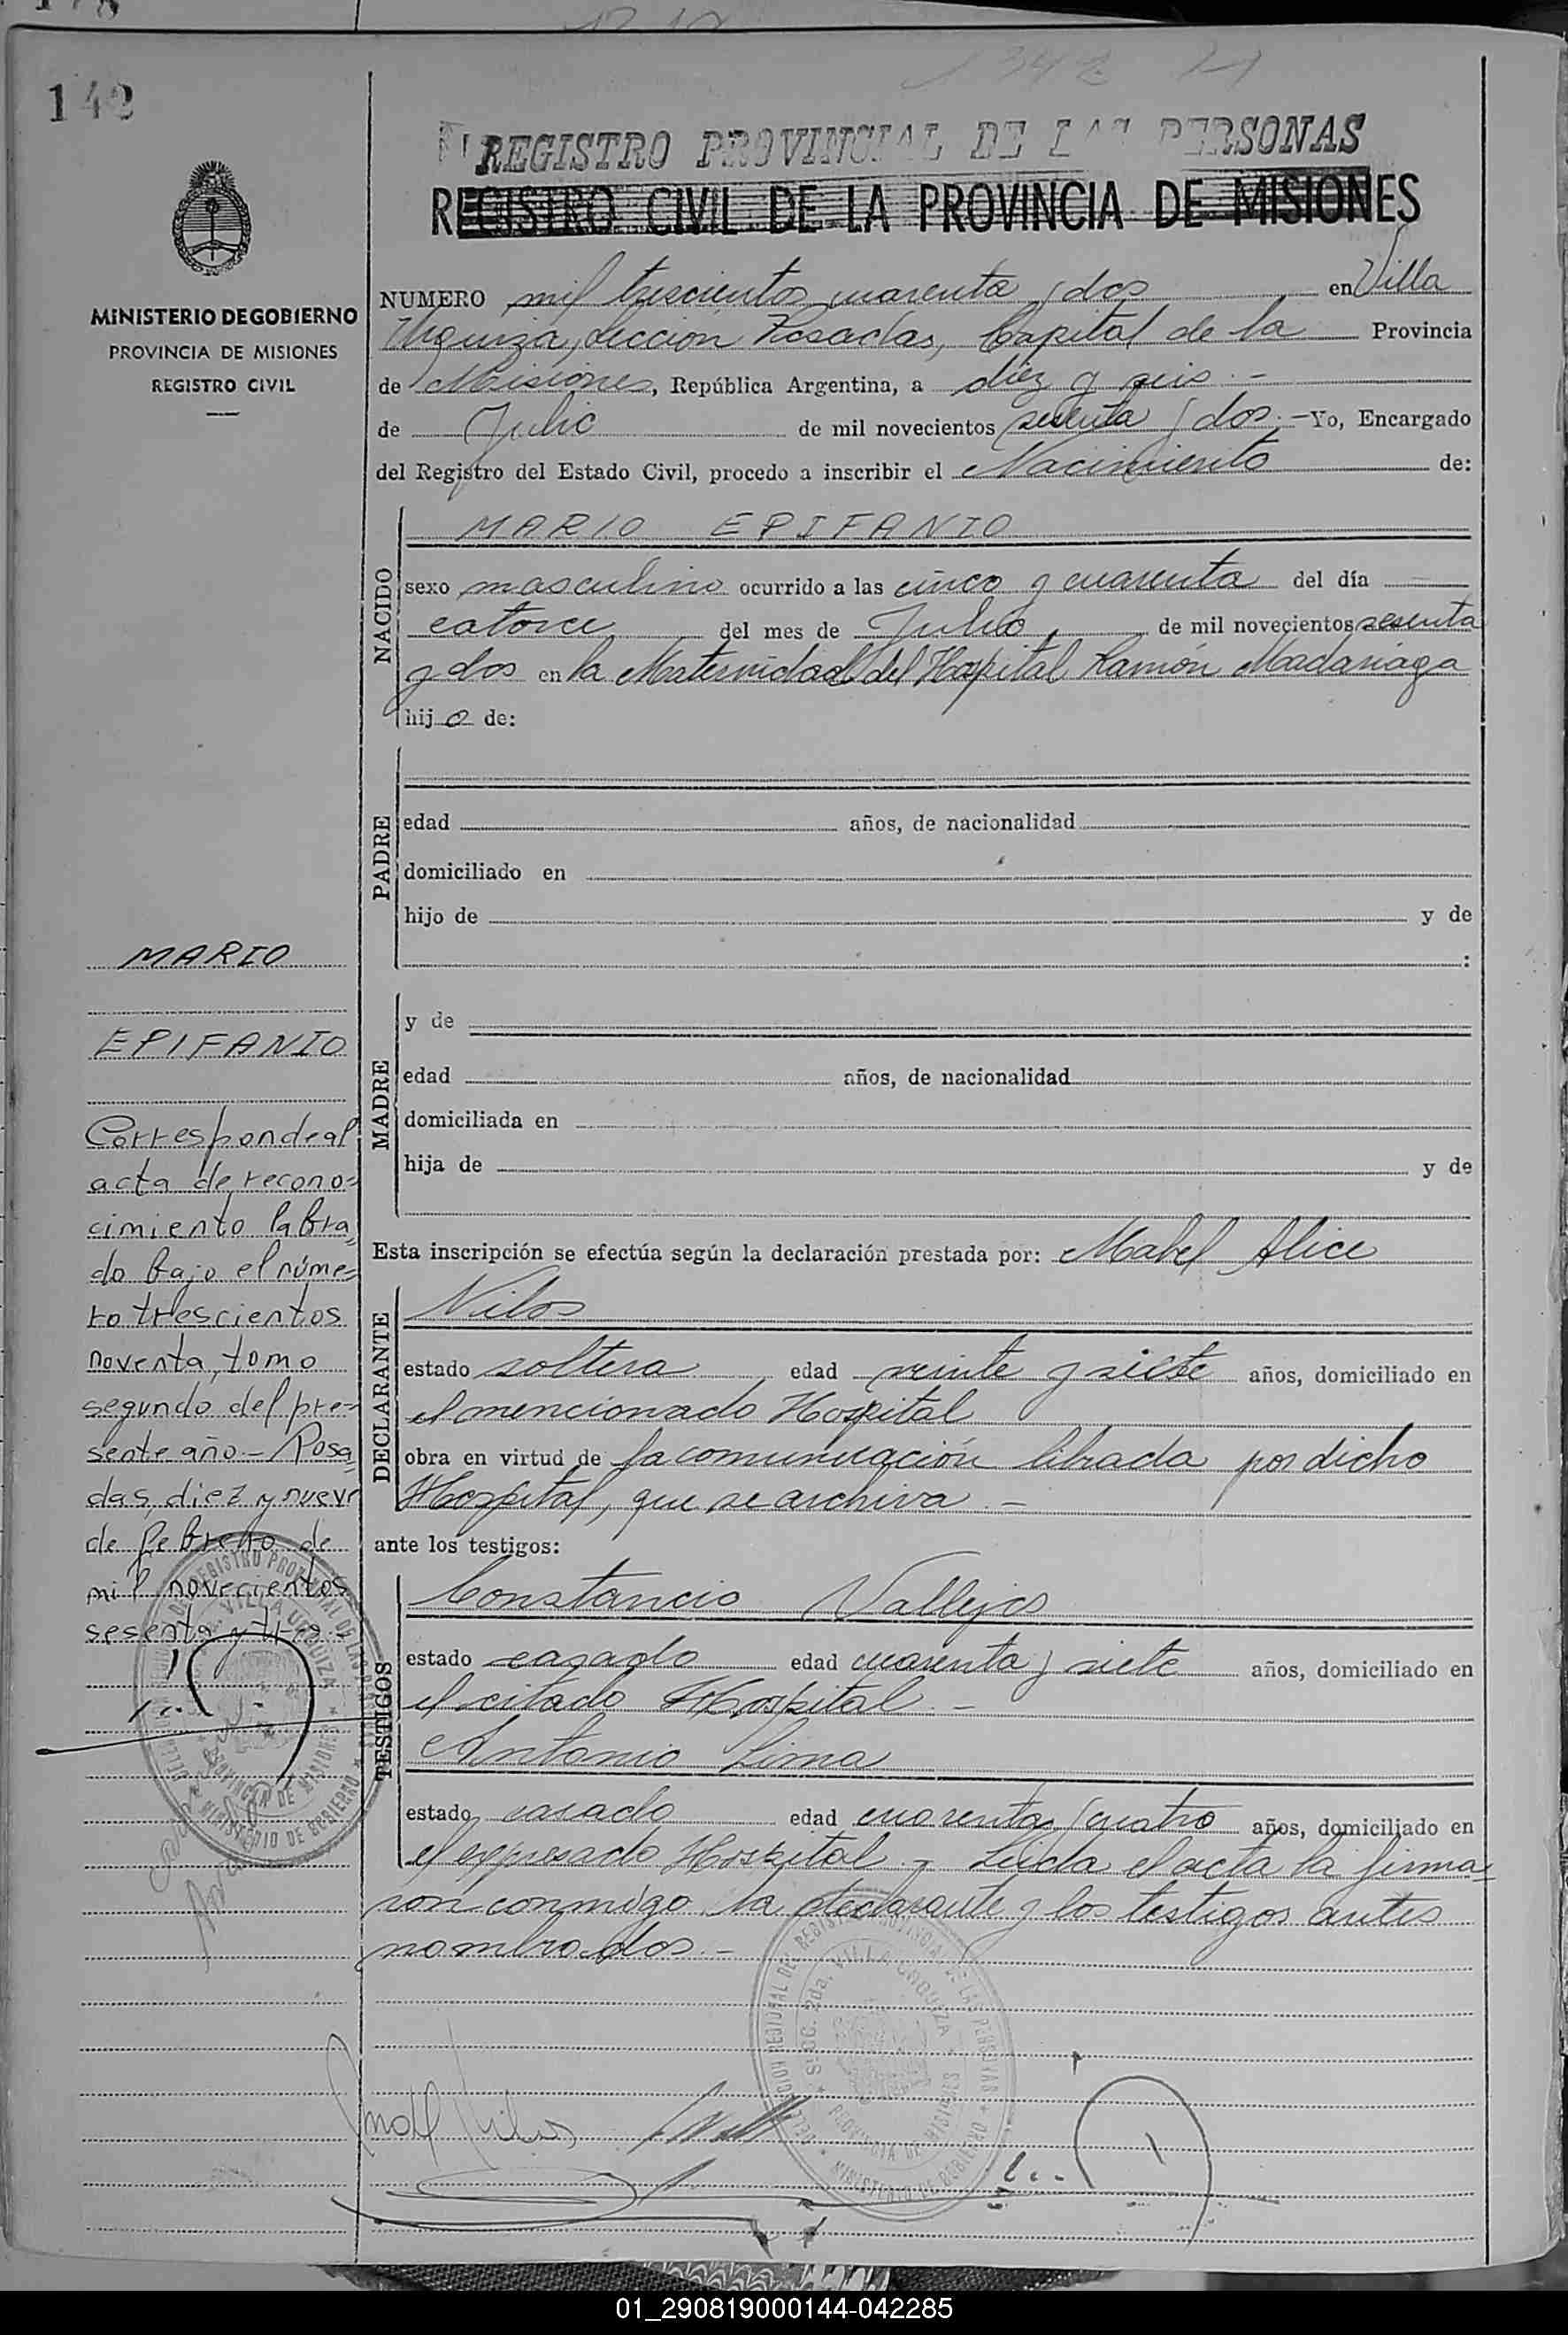 142
1342
REGISTRO PROVINCIAL DE LAS PERSONAS
REGISTRO CIVIL DE LA PROVINCIA DE MISIONES
MINISTERIO DE GOBIERNO
PROVINCIA DE MISIONES
REGISTRO CIVIL
NUMERO mil trescientos cuarenta y dos en Villa
Urquiza, sección Posadas, Capital de la Provincia
de Misiones, República Argentina, a diez y seis.-
de Julio de mil novecientos sesenta y dos.- Yo, Encargado
del Registro del Estado Civil, procedo a inscribir el Nacimiento de:
NACIDO
MARIO EPIFANIO
sexo masculino ocurrido a las cinco y cuarenta del día
catorce del mes de Julio, de mil novecientos sesenta
y dos en la Maternidad del Hospital Ramón Madariaga
hijo de:
PADRE
edad años, de nacionalidad
domiciliado en
hijo de y de
:
MADRE
y de
edad años, de nacionalidad
domiciliada en
hija de y de
Esta inscripción se efectúa según la declaración prestada por: Mabel Alice
DECLARANTE
Nilos
estado soltera edad veinte y siete años, domiciliado en
el mencionado Hospital
obra en virtud de la comunicación librada por dicho
Hospital, que se archiva.-
ante los testigos:
TESTIGOS
Constancio Vallejos
estado casado edad cuarenta y siete años, domiciliado en
el citado Hospital.-
Antonio Lima
estado casado edad cuarenta y cuatro años, domiciliado en
el expresado Hospital.- Leída el acta la firma-
ron conmigo la declarante y los testigos antes
nombrados.-
MARIO
EPIFANIO
Corresponde al
acta de recono-
cimiento labra-
do bajo el núme-
ro trescientos
noventa, tomo
segundo del pre-
sente año.- Posa-
das, diez y nueve
de febrero de
mil novecientos
sesenta y tres.-
01_290819000144-042285